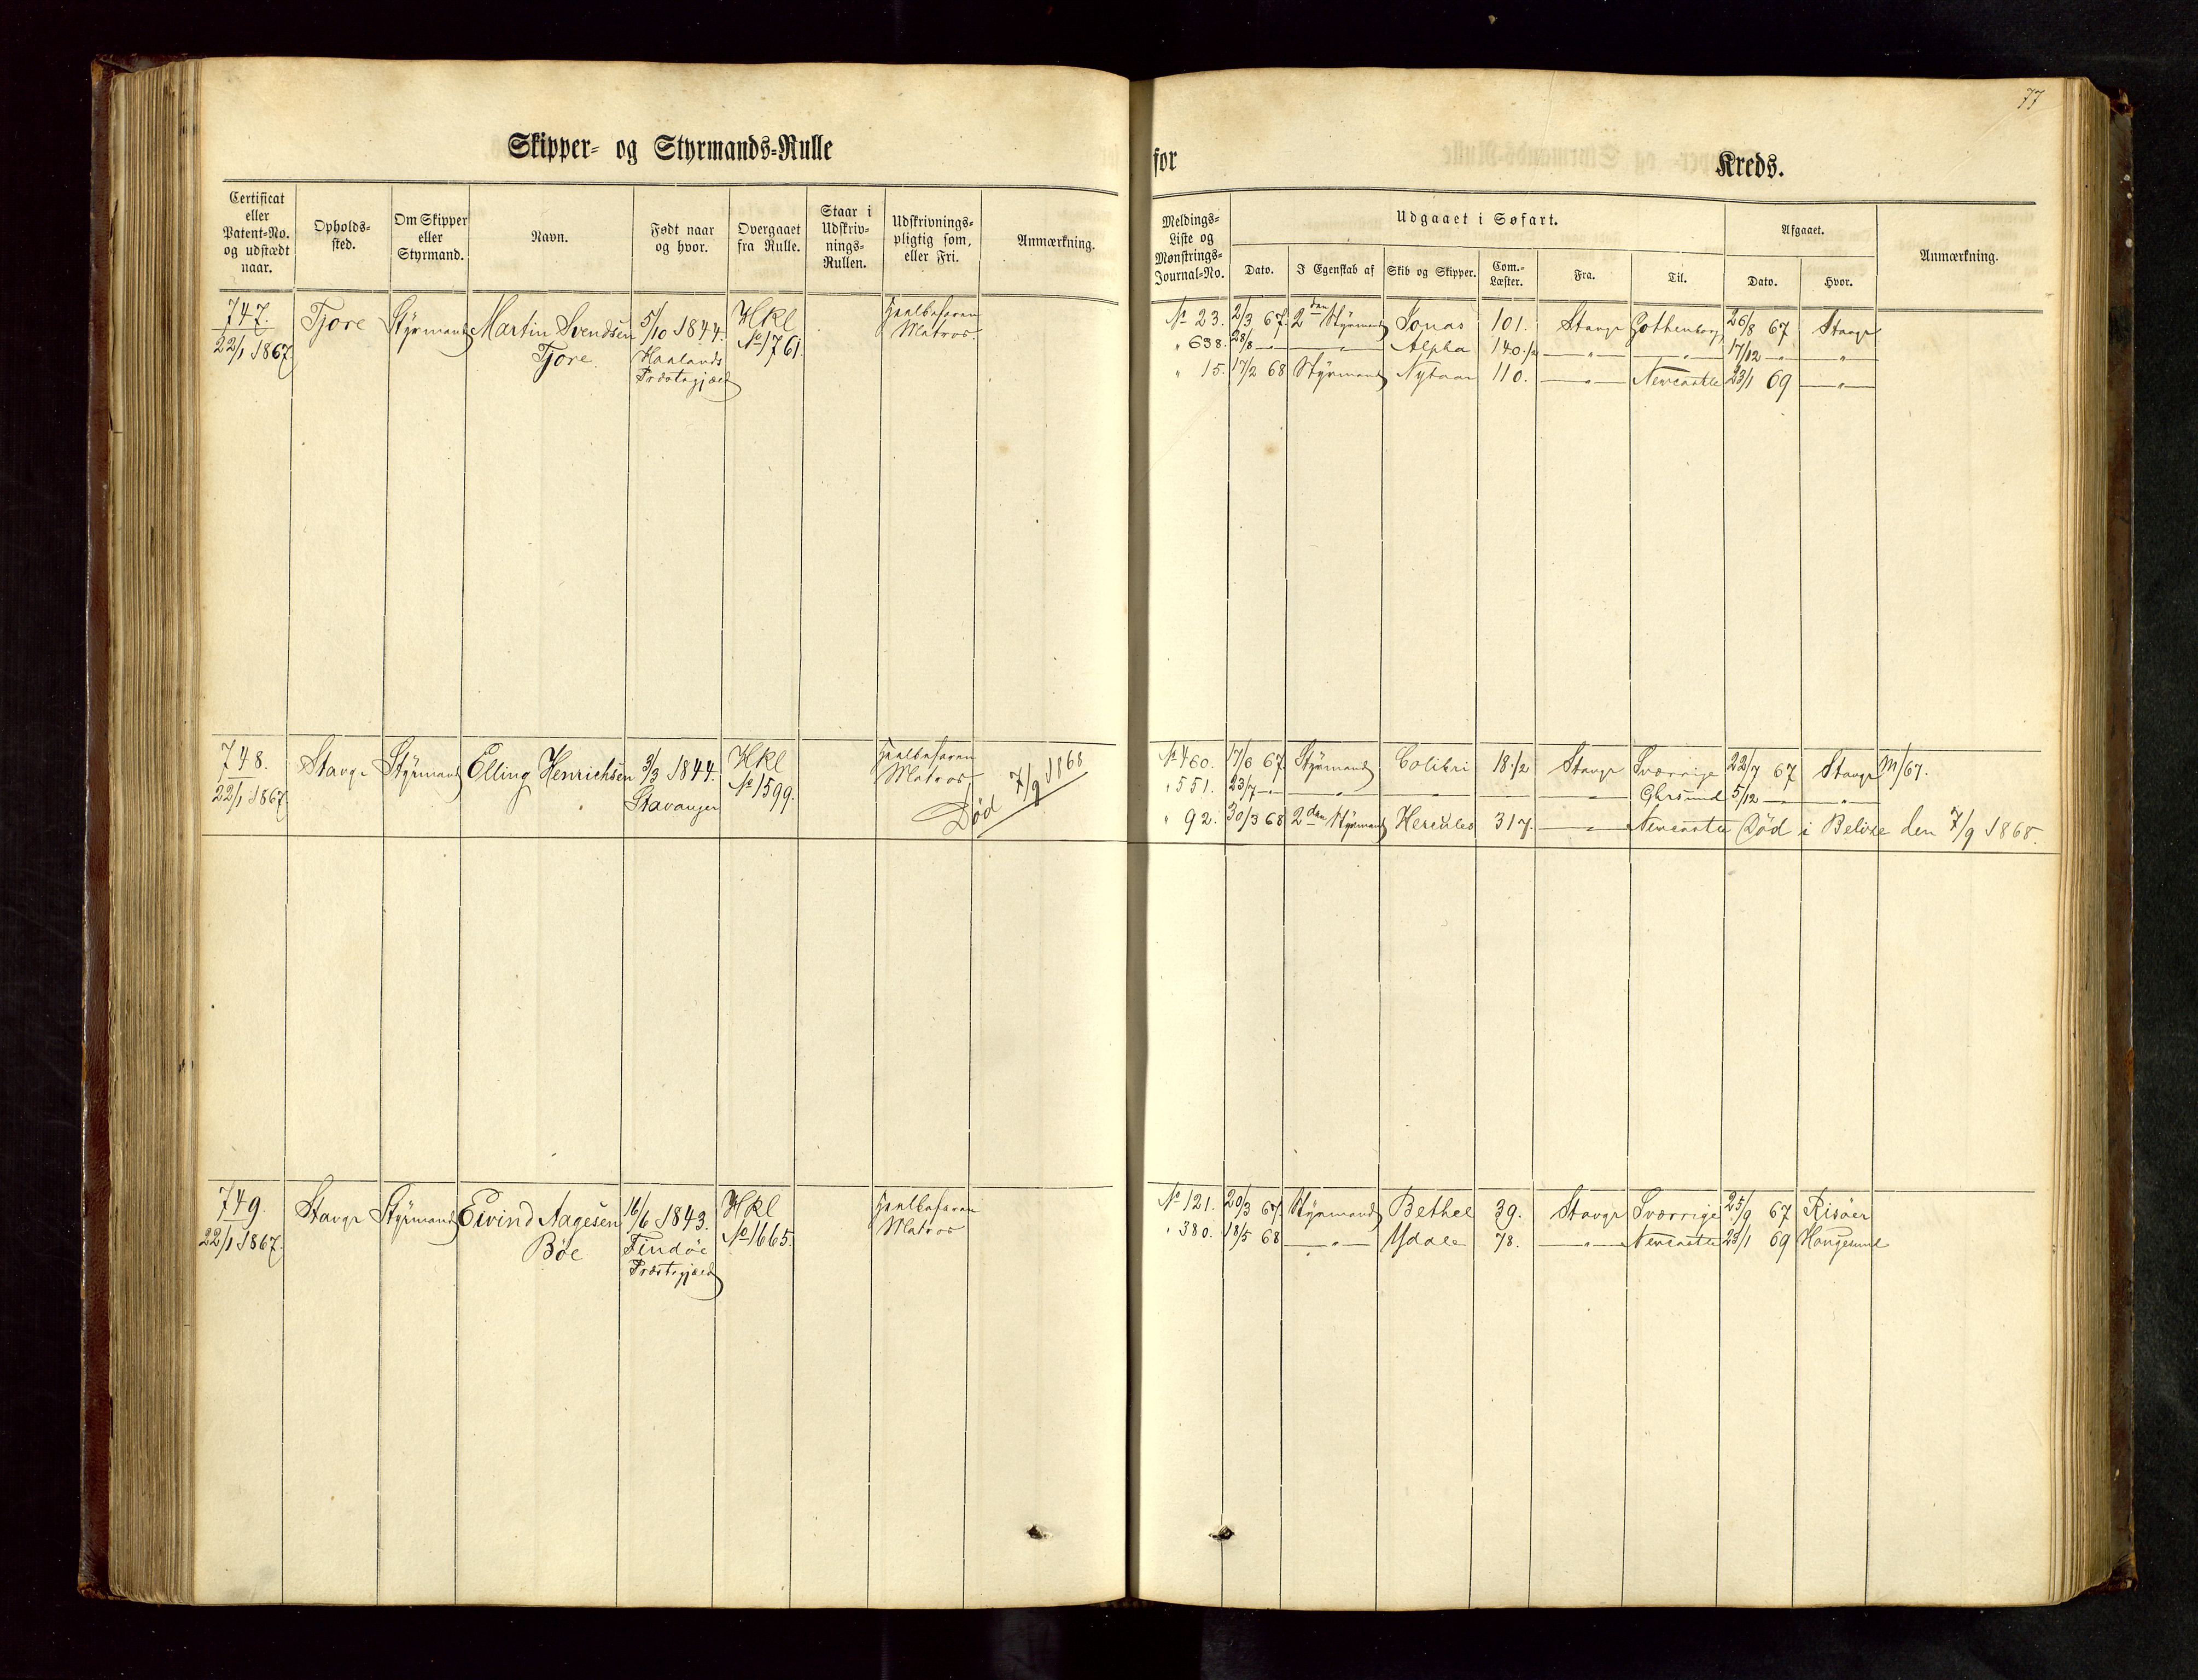 77
Skipper- og Styrmands-Rulle
for
Kreds.
Certificat eller Patent-No. og udstædt naar.
Opholds-sted.
Om Skipper eller Styrmand.
Navn.
Født naar og hvor.
Overgaaet fra Rulle.
Staar i Udskriv-nings-Rullen.
Udskrivnings-pligtig som, eller Fri.
Anmærkning.
Meldings-Liste og Mønstrings-Journal-No.
Udgaaet i Søfart.
Afgaaet.
Anmærkning.
Dato.
I Egenskab af
Skib og Skipper.
Com.-Læster.
Fra.
Til.
Dato.
Hvor.
747. Tjore Styrmand Martin Svendsen 5/10 1844. Hkl Heelbefaren
22/1 1867. Tjore. Haalands No 1761. Matros.
Præstegjæld
No 23. 2/3 67. 2den Styrmand Jonas 101. Stavgr Gothenborg 26/8 67 Stavgr
" 638. 28/8 — — " — Alpha 140.1/2 — " — — " — 17/12 — — " —
" 15. 17/2 68 Styrmand Nytaar 110. — " — Newcastle 23/1 69 — " —
748. Stavgr Styrmand Elling Henrichsen 3/3 1844. Hkl Heelbefaren
22/1 1867. Stavanger No 1599. Matros
Død 7/9 1868
No 460. 17/6 67. Styrmand Colibri 18.1/2 Stavgr Sverrige 22/7 67 Stavgr M/67.
" 551. 23/7 — — " — — " — — " — Ghrsund 5/12 — — " —
" 92. 30/3 68 2den Styrmand Hercules 317. — " — Newcastle Død i Belize den 7/9 1868.
749. Stavgr Styrmand Eivind Aagesen 16/6 1843. Hkl Heelbefaren
22/1 1867. Bøe Findöe No 1665. Matros
Præstegjæld
No 121. 20/3 67. Styrmand Bethel 39. Stavgr Sverrige 25/9 67 Risöer
" 380. 18/5 68 — " — Ydale 78. — " — Newcastle 23/1 69 Haugesund